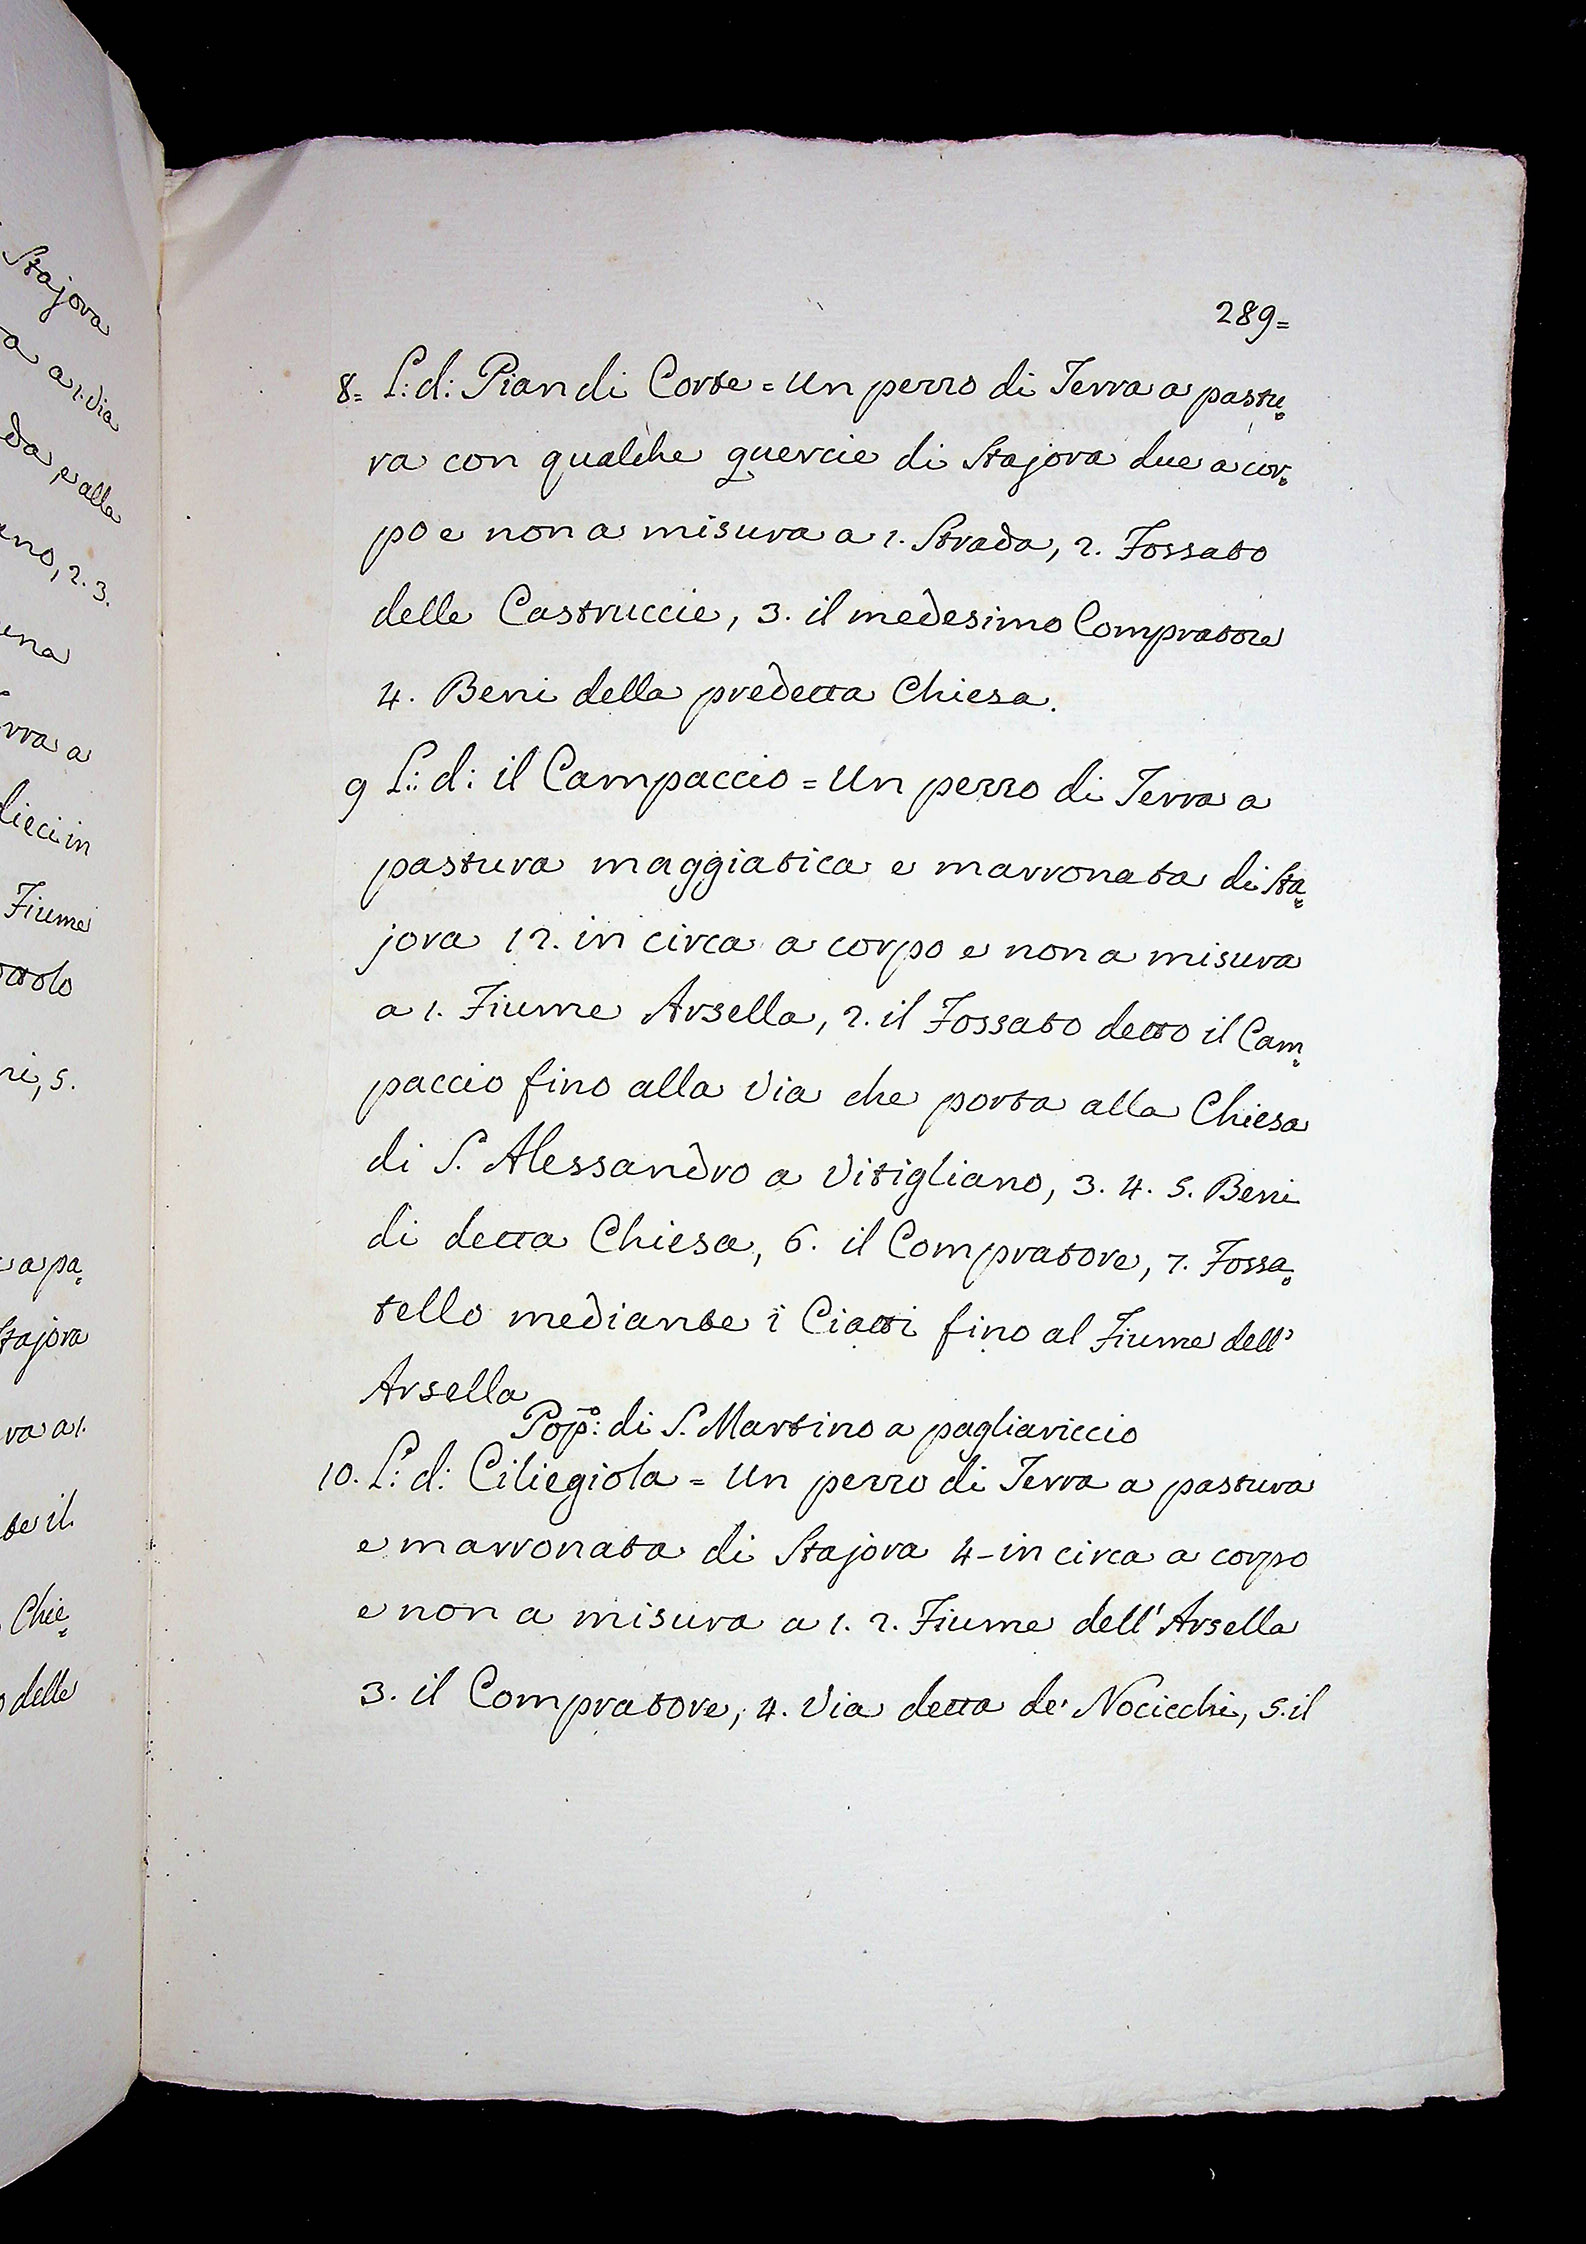 289=
8= L: d: Pian di Corte = Un pezzo di Terra a pastu=
ra con qualche quercie di Stajora due a cor=
po e non a misura a 1. Strada, 2. Fossato
delle Castruccie, 3. il medesimo Compratore
4. Beni della predetta Chiesa.
9 L: d: il Campaccio = Un pezzo di Terra a
pastura maggiatica e marronata di Sta=
jora 12. in circa a corpo e non a misura
a 1. Fiume Arsella, 2. il Fossato detto il Cam=
paccio fino alla Via che porta alla Chiesa
di S. Alessandro a Vitigliano, 3. 4. 5. Beni
di detta Chiesa, 6. il Compratore, 7. Fossa=
tello mediante i Ciatti fino al Fiume dell'
Arsella
Pop:º di S. Martino a pagliariccio
10. L: d: Ciliegiola = Un pezzo di Terra a pastura
e marronata di Stajora 4- in circa a corpo
e non a misura a 1. 2. Fiume dell' Arsella
3. il Compratore, 4. Via detta de' Nocicchi, 5. il